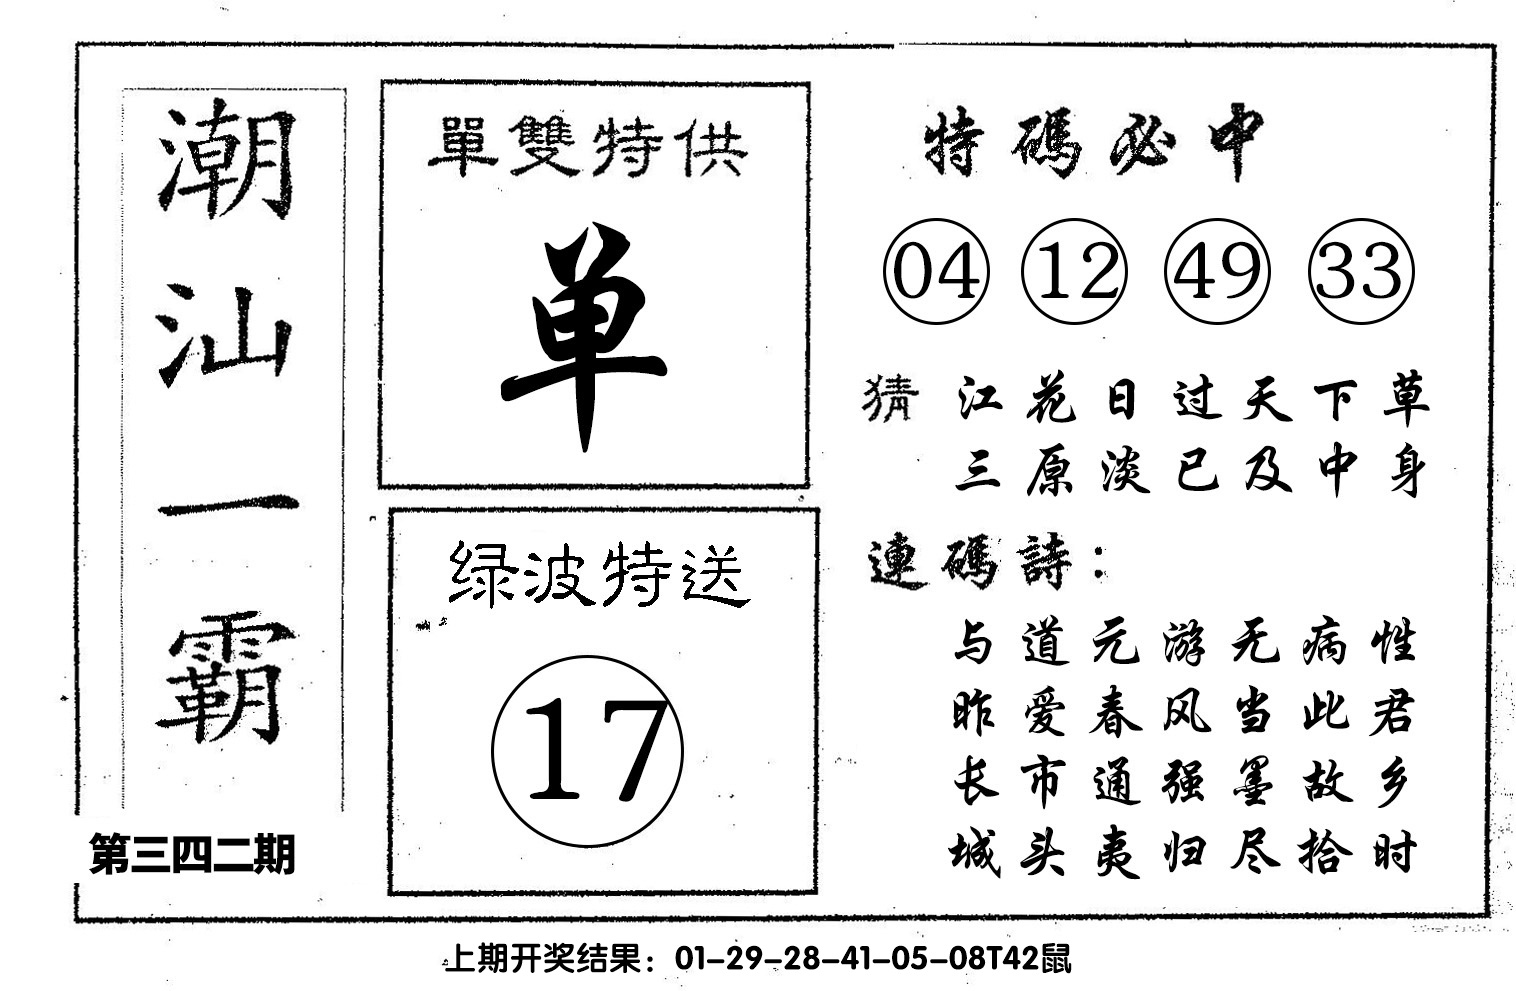 潮汕一霸
第三四二期
單雙特供
单
绿波特送
17
特碼必中
04 12 49 33
猜 江花日过天下草
三原淡已及中身
連碼詩：
与道元游无病性
昨爱春风当此君
长市通强墨故乡
城头夷归尽拾时
上期开奖结果：01-29-28-41-05-08T42鼠